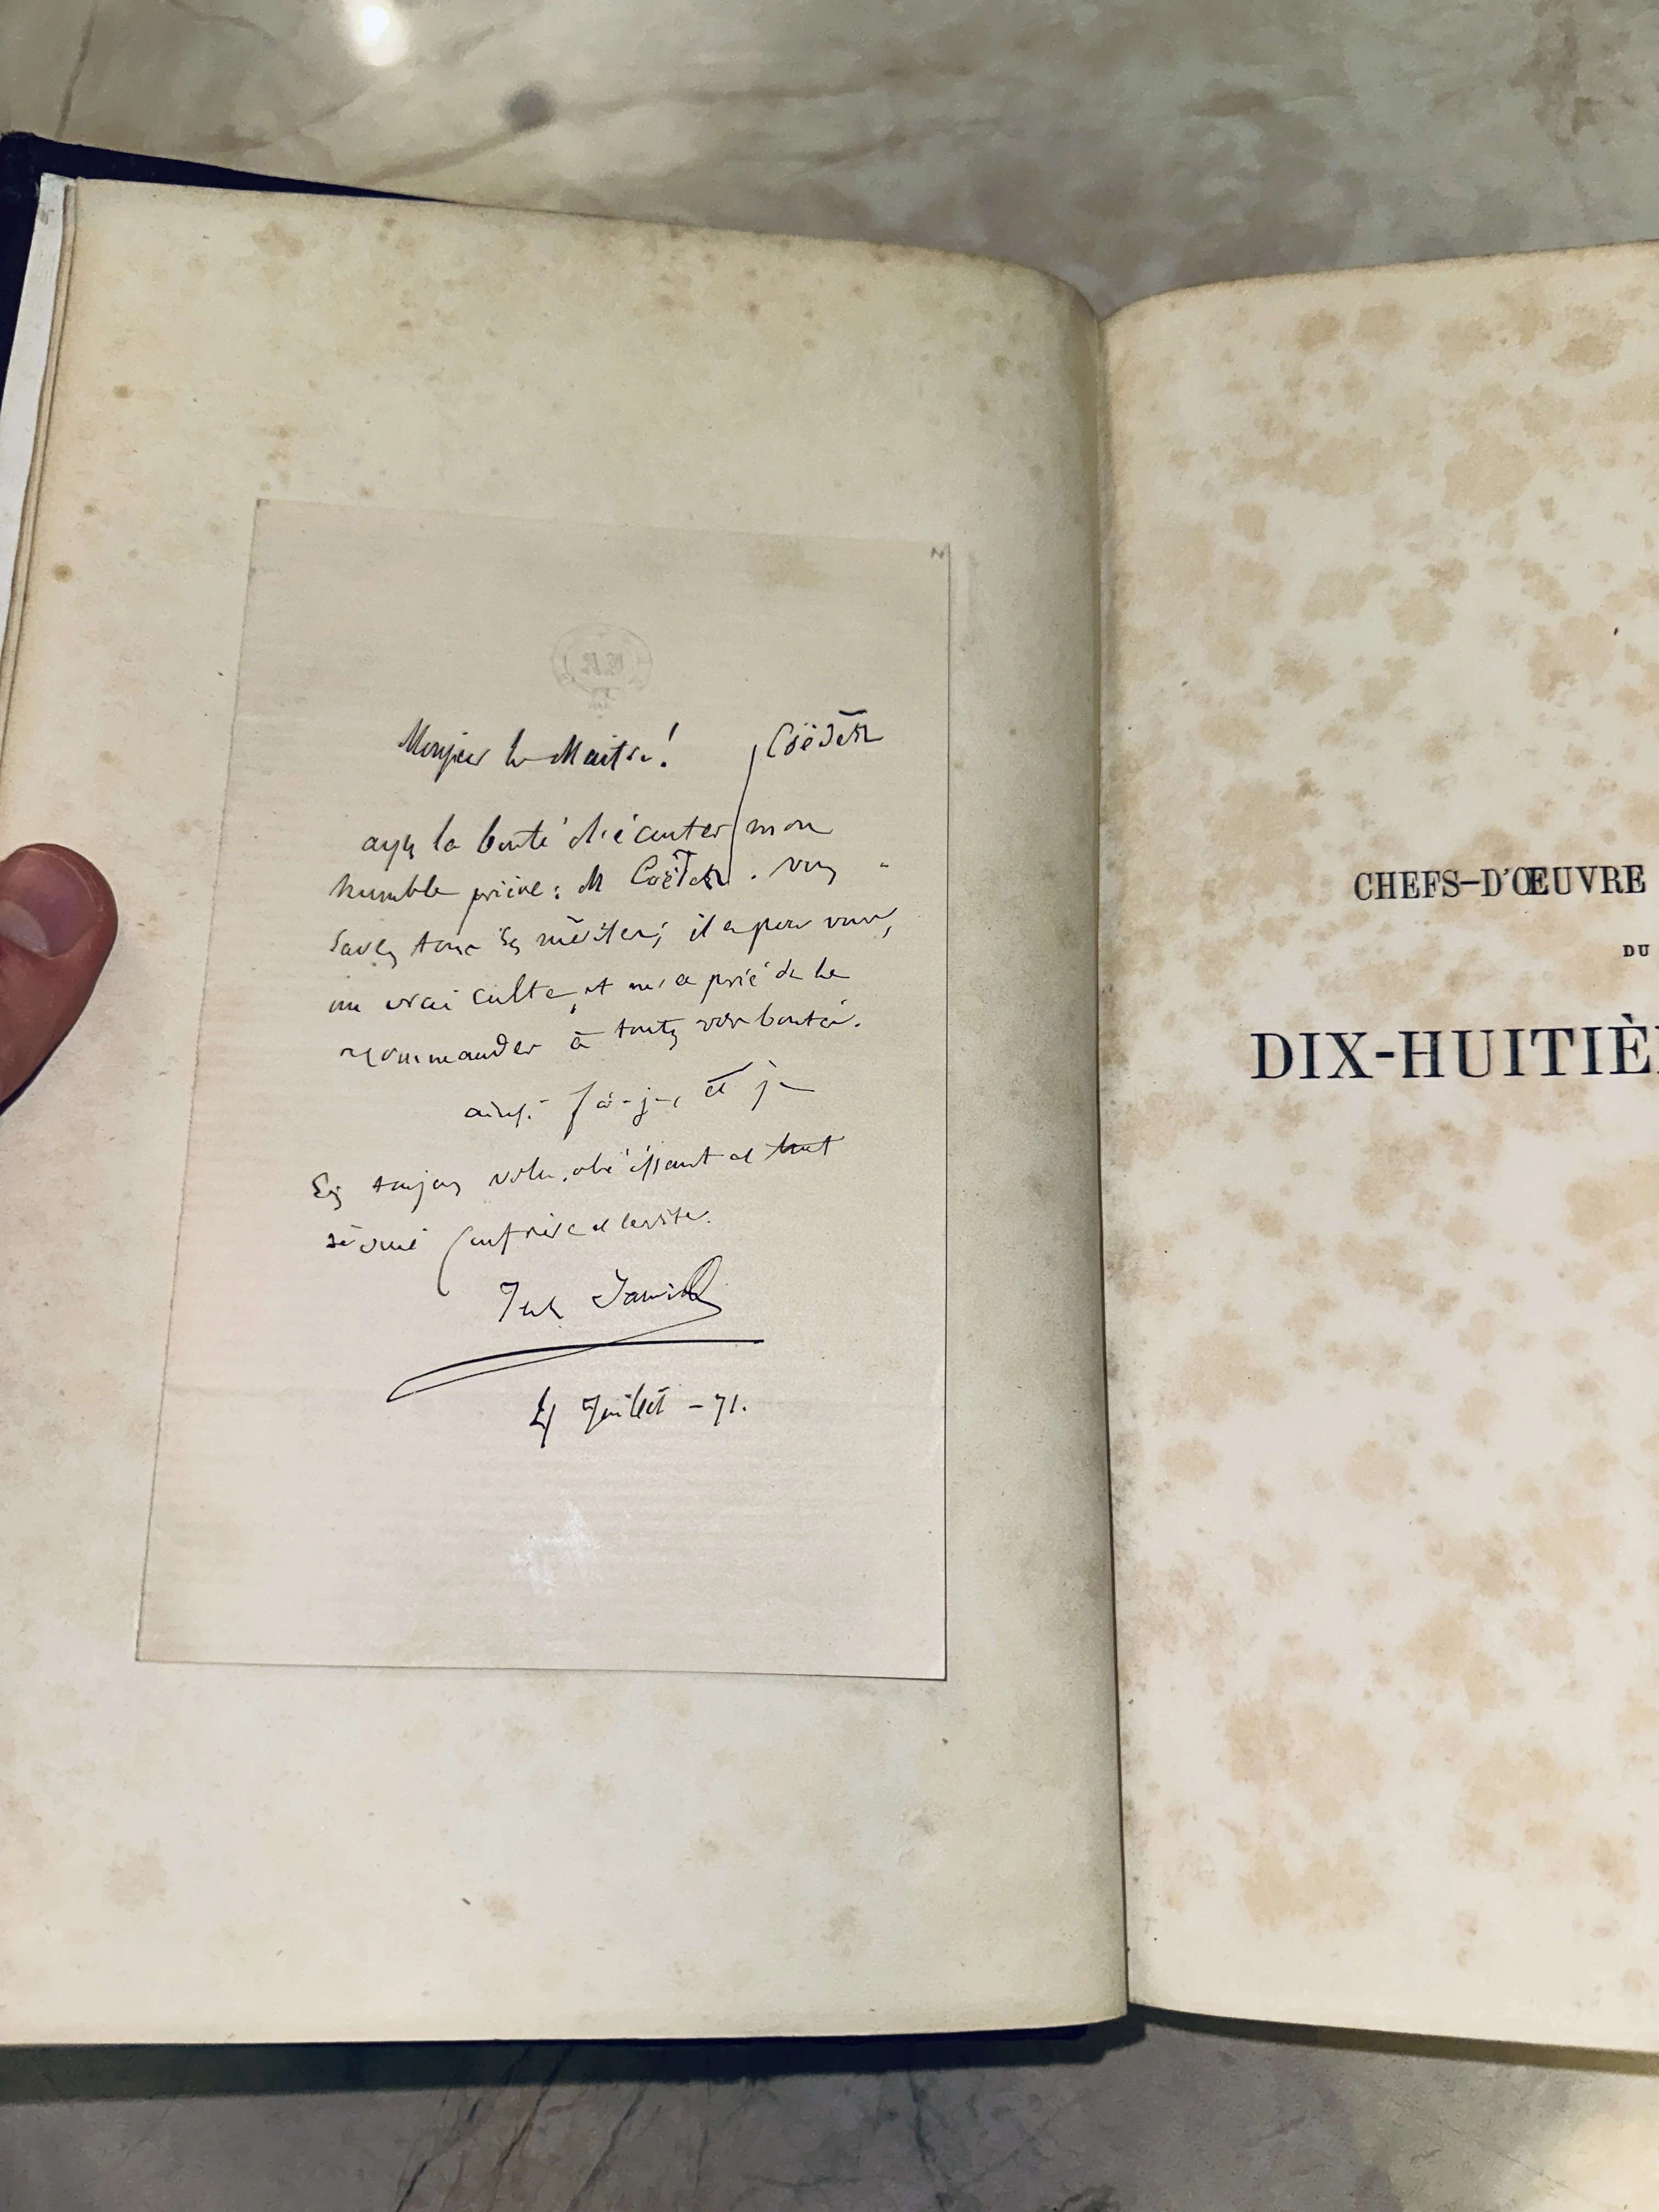 Monsieur le Maitre!
Coëdès
ayez la bonté d'écouter mon
humble prière: M Coëdès. vous
savez tous ses mérites; il a pour vous,
un vrai culte, et m'a prié de le
recommander à toutes vos bontés.
ainsi fais-je, et je
suis toujours votre obéissant et tout
dévoué confrère et
4 Juillet - 71.
CHEFS-D'ŒUVRE
DU
DIX-HUITIÈ